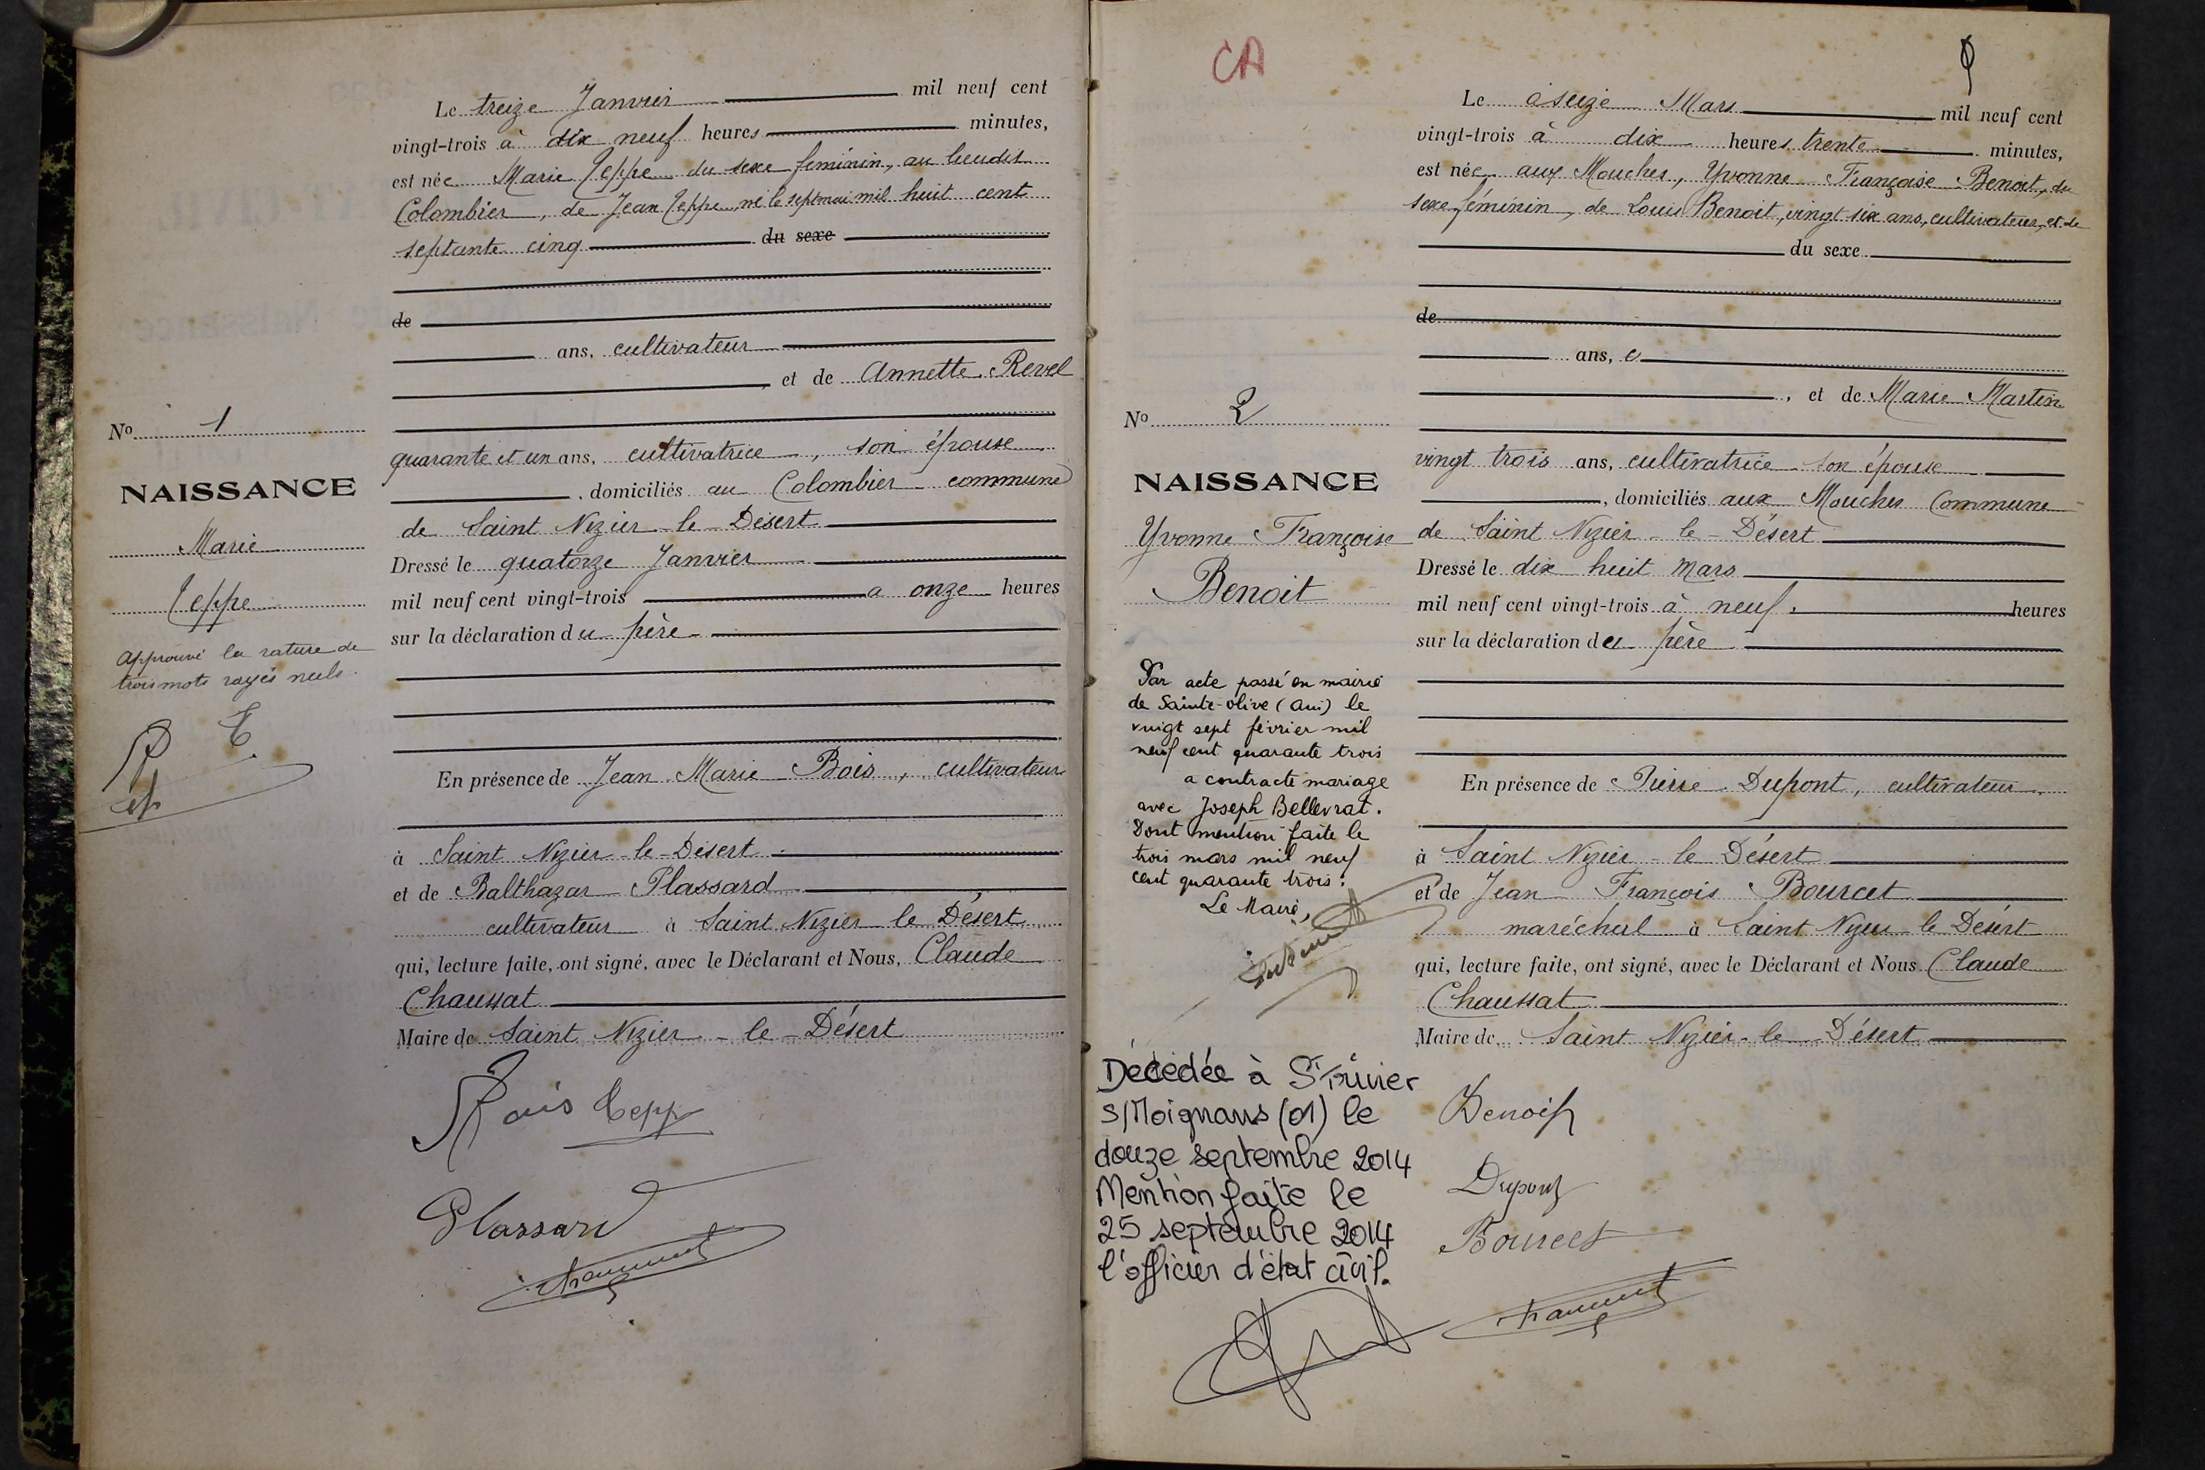 Le treize Janvier mil neuf cent
vingt-trois à dix neuf heures minutes,
est née Marie Teppe du sexe feminin, au lieudit
Colombier, de Jean Teppe, né le sept mai mil huit cent
septante cinq du sexe
de
ans, cultivateur
, et de Annette Revel
quarante et un ans, cultivatrice, son épouse
, domiciliés au Colombier commune
de Saint Nizier-le-Désert
Dressé le quatorze Janvier
mil neuf cent vingt-trois a onze heures
sur la déclaration du père
En présence de Jean Marie Bois, cultivateur
à Saint Nizier-le-Désert
et de Balthazar Plassard
cultivateur à Saint Nizier le Désert
qui, lecture faite, ont signé, avec le Déclarant et Nous, Claude
Chaussat
Maire de Saint Nizier-le-Désert
Bois Tepp
Plassard
No 1
NAISSANCE
Marie
Teppe
Approuvé la rature de
trois mots rayés nuls.
CA
Le seize Mars mil neuf cent
vingt-trois à dix heures trente minutes,
est née, aux Mouches, Yvonne Françoise Benoit, du
sexe féminin, de Louis Benoit, vingt six ans, cultivateur, et de
du sexe
de
ans, c
, et de Marie Martin
vingt trois ans, cultivatrice son épouse
, domiciliés aux Mouches Commune
de Saint Nizier-le-Désert
Dressé le dix huit Mars
mil neuf cent vingt-trois à neuf heures
sur la déclaration du père
En présence de Pierre Dupont, cultivateur
à Saint Nizier-le Désert
et de Jean François Bourcet
maréchal à Saint Nizier-le Désert
qui, lecture faite, ont signé, avec le Déclarant et Nous Claude
Chaussat
Maire de Saint Nizier-le-Désert
Benoit
Dupont
Bourcet
No 2
NAISSANCE
Yvonne Françoise
Benoit
Par acte passé en mairie
de Sainte-Olive (Ain) le
vingt sept février mil
neuf cent quarante trois
a contracté mariage
avec Joseph Bellevrat.
Dont mention faite le
trois mars mil neuf
cent quarante trois.
Le Maire,
Décédée à St Trivier
s/Moignans (01) le
douze septembre 2014
Mention faite le
25 septembre 2014
l'officier d'état civil.